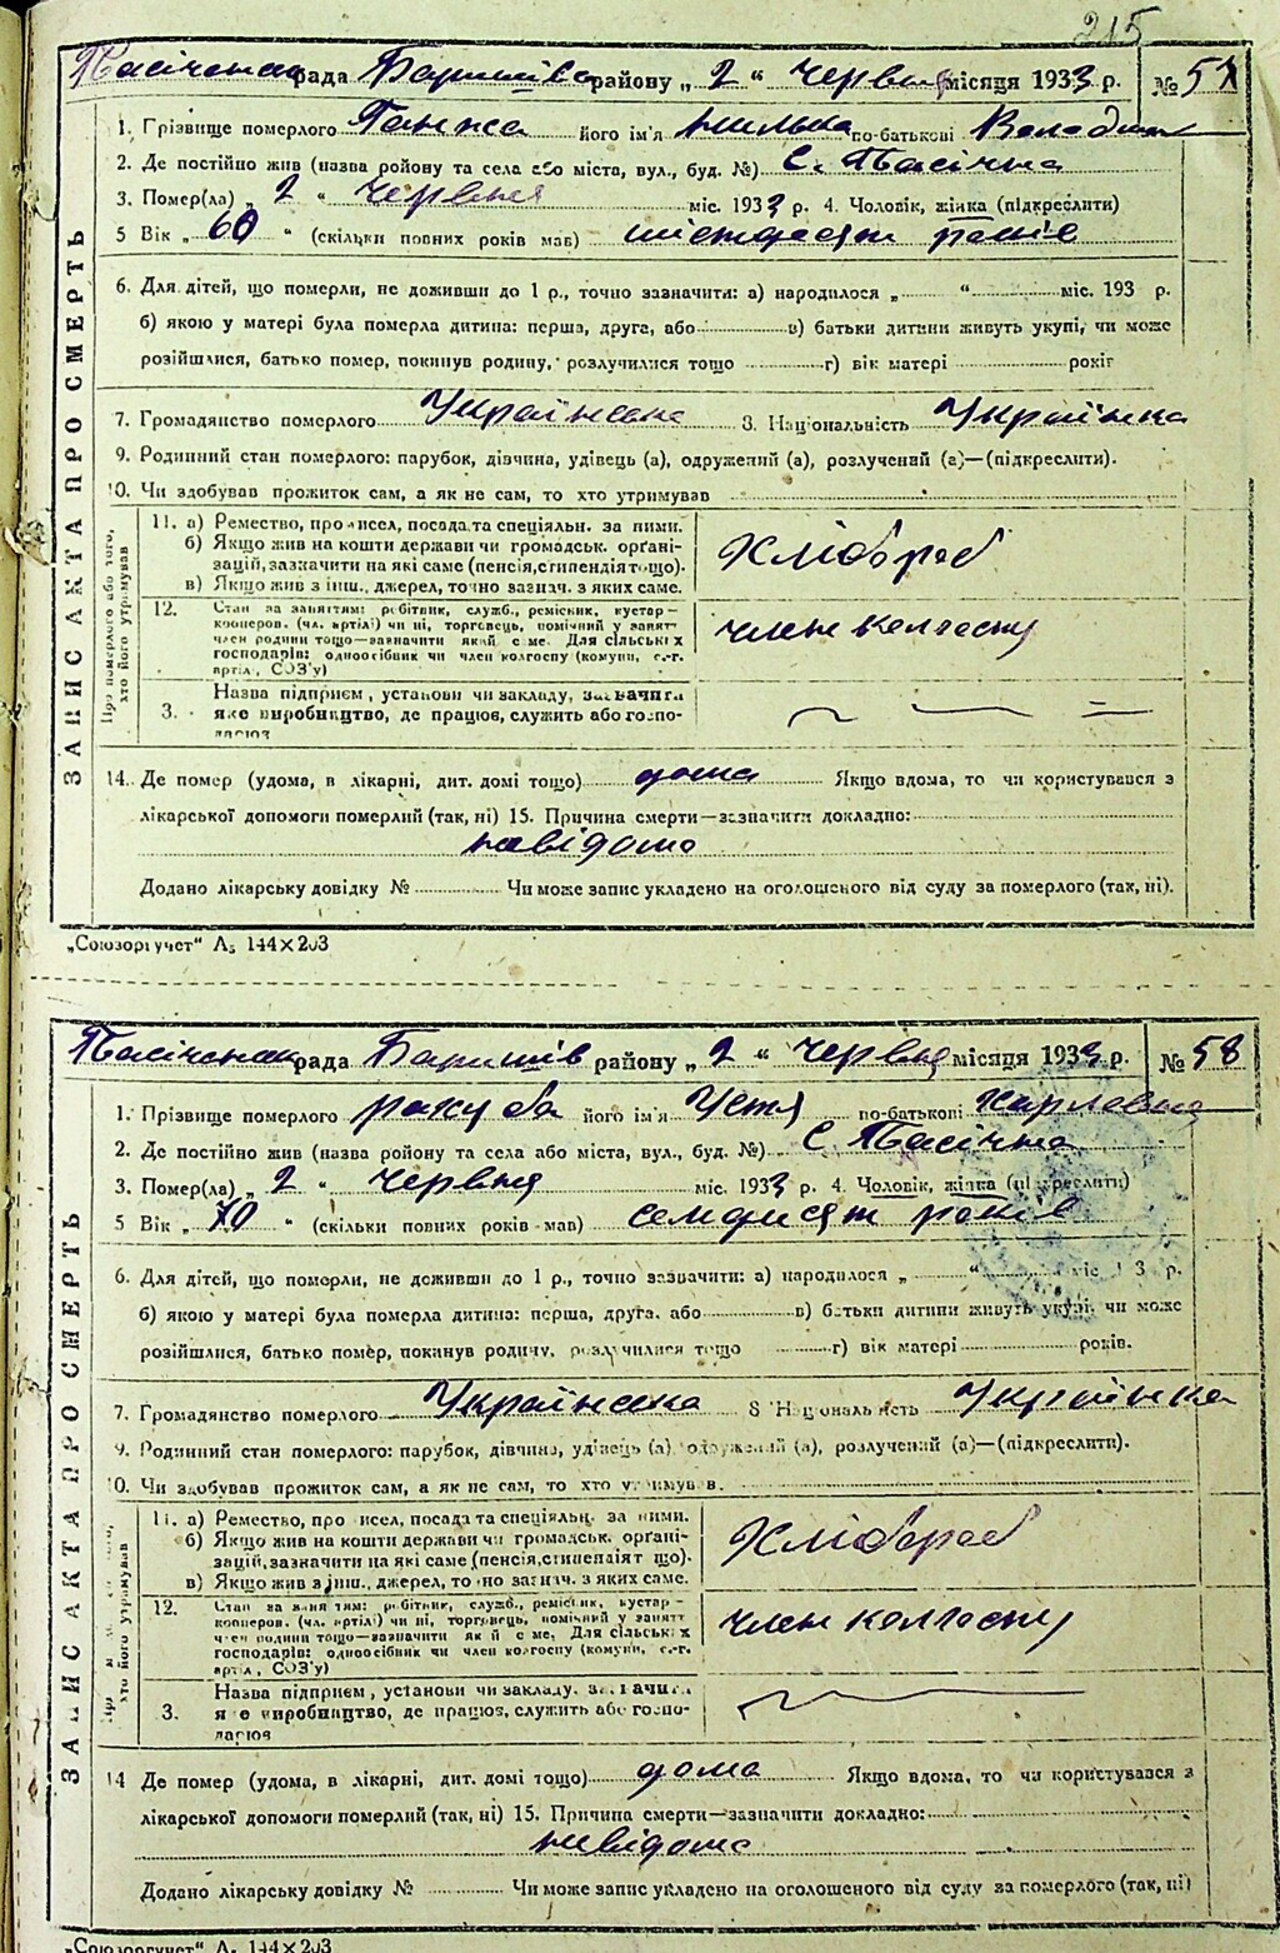 215
Пасічська рада Баришівс району „ 2 “ червня місяця 1933 р. № 57
ЗАПИС АКТА ПРО СМЕРТЬ
1. Прізвище померлого Ганжа його ім'я по-батькові
2. Де постійно жив (назва ройону та села або міста, вул., буд. №) С. Пасічна
3. Помер(ла) „ 2 “ червня міс. 1933 р. 4. Чоловік, жінка (підкреслити)
5 Вік „ 60 “ (скільки повних років мав) шістдесят років
6. Для дітей, що померли, не доживши до 1 р., точно зазначити: а) народилося „ “ міс. 193 р.
б) якою у матері була померла дитина: перша, друга, або в) батьки дитини живуть укупі, чи може
розійшлися, батько помер, покинув родину, розлучилися тощо г) вік матері років
7. Громадянство померлого Українська 8. Національність Українка
9. Родинний стан померлого: парубок, дівчина, удівець (а), одружений (а), розлучений (а)—(підкреслити).
10. Чи здобував прожиток сам, а як не сам, то хто утримував
Про померлого або того, хто його утримував
11. а) Ремество, промисел, посада та спеціяльн. за ними.
б) Якщо жив на кошти держави чи громадськ. органі-
зацій, зазначити на які саме (пенсія, стипендія тощо).
в) Якщо жив з інш., джерел, точно зазнач. з яких саме.
Хлібороб
12. Стан за заняттям: робітник, служб., ремісник, кустар—
кооперов. (чл. артілі) чи ні, торговець, помічний у занятт
член родини тощо—зазначити який саме. Для сільських
господарів: одноосібник чи член колгоспу (комуни, с.-г.
артіл, СОЗ'у)
член колгоспу
Назва підприєм, установи чи закладу, зазначити
3. яке виробництво, де працює, служить або госпо-
дарює
14. Де помер (удома, в лікарні, дит. домі тощо) дома Якщо вдома, то чи користувався з
лікарської допомоги померлий (так, ні) 15. Причина смерти—зазначити докладно:
невідома
Додано лікарську довідку № Чи може запис укладено на оголошеного від суду за померлого (так, ні).
„Союзоргучет“ А₅ 144×203
Пасічська рада Баришів району „ 2 “ червня місяця 1933 р. № 58
ЗАПИС АКТА ПРО СМЕРТЬ
1. Прізвище померлого Ракуба його ім'я Устя по-батькові Карповна
2. Де постійно жив (назва ройону та села або міста, вул., буд. №) С Пасічна
3. Помер(ла) „ 2 “ червня міс. 1933 р. 4. Чоловік, жінка (підкреслити)
5 Вік „ 70 “ (скільки повних років мав) семдисят років
6. Для дітей, що померли, не доживши до 1 р., точно зазначити: а) народилося „ “ міс 193 р.
б) якою у матері була померла дитина: перша, друга, або в) батьки дитини живуть укупі, чи може
розійшлися, батько помер, покинув родину, розлучилися тощо г) вік матері років.
7. Громадянство померлого Українська 8 Національність Українка
9. Родинний стан померлого: парубок, дівчина, удівець (а), одружений (а), розлучений (а)—(підкреслити).
10. Чи здобував прожиток сам, а як не сам, то хто утримував.
хто його утримував
11. а) Ремество, промисел, посада та спеціяльн. за ними.
б) Якщо жив на кошти держави чи громадськ. органі-
зацій, зазначити на які саме (пенсія, стипендія тощо).
в) Якщо жив з інш., джерел, точно зазнач. з яких саме.
Хлібороб
12. Стан за заняттям: робітник, служб., ремісник, кустар—
кооперов. (чл. артілі) чи ні, торговець, помічний у занятт
член родини тощо—зазначити який саме. Для сільських
господарів: одноосібник чи член колгоспу (комуни, с.-г.
артіл, СОЗ'у)
член колгоспу
Назва підприєм, установи чи закладу, зазначити
3. яке виробництво, де працює, служить або госпо-
дарює
14 Де помер (удома, в лікарні, дит. домі тощо) дома Якщо вдома, то чи користувався з
лікарської допомоги померлий (так, ні) 15. Причина смерти—зазначити докладно:
невідома
Додано лікарську довідку № Чи може запис укладено на оголошеного від суду за померлого (так, ні)
„Союзоргучет“ А₅ 144×203